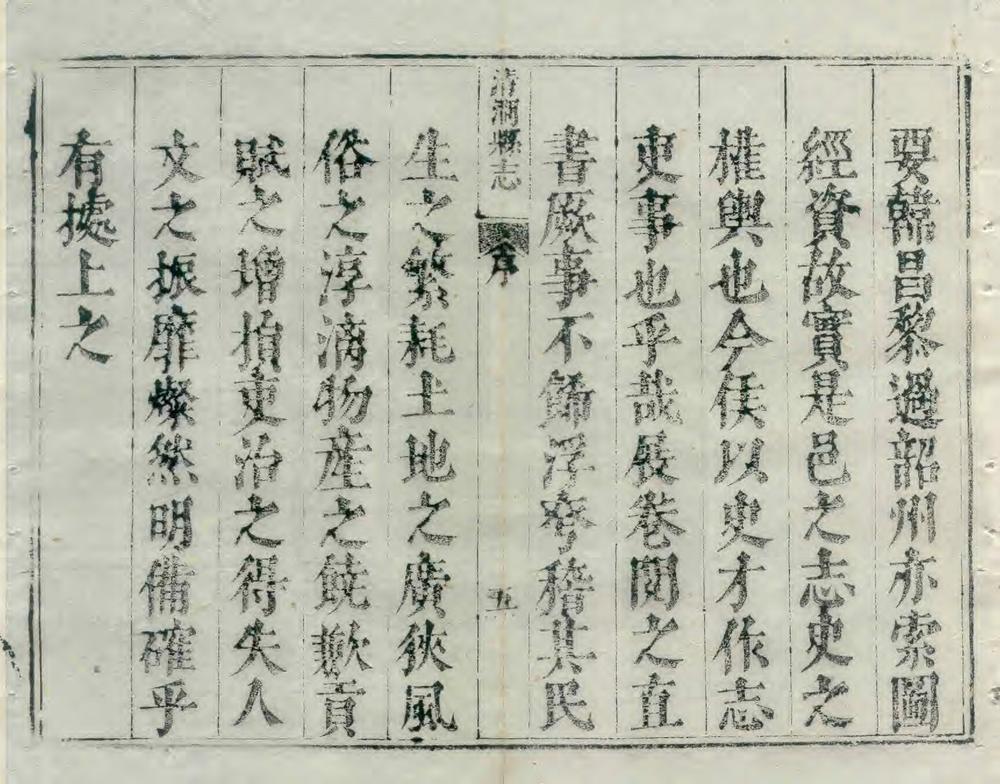 要韓昌黎過韶州亦索圖
經資故實是邑之志史之
權輿也今侯以史才作志
史事也乎哉展卷閱之直
書厥事不飾浮夸稽其民
清澗縣志
序
五
生之繁耗土地之廣狹風
俗之淳漓物產之饒歉貢
賦之增損吏治之得失人
文之振靡燦然明備確乎
有據上之